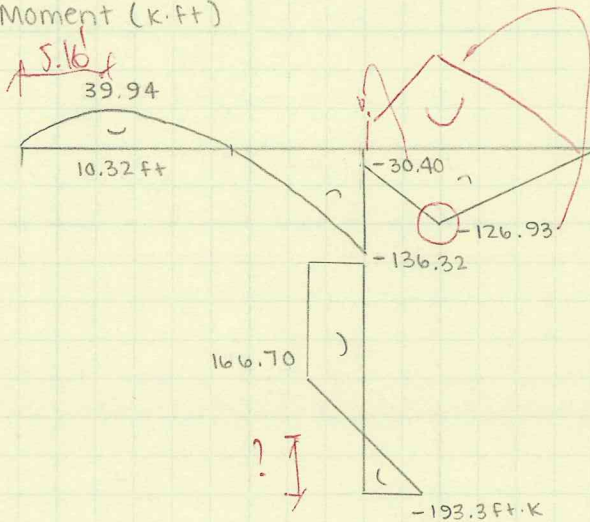 Moment (k.ft)
5.16'
39.94
10.32 ft
-30.40
-126.93
-136.32
166.70
?
-193.3 ft.k